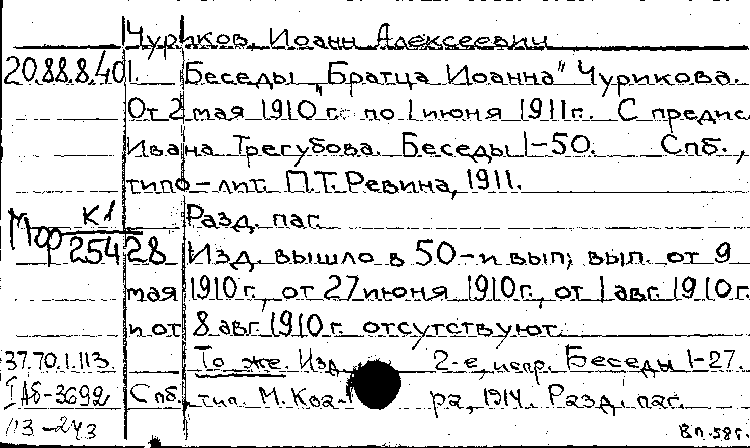 Чуриков, Иоанн Алексеевич
20.88.8.40 1. Беседы "Братца Иоанна" Чурикова.
От 2 мая 1910 г. по 1 июня 1911 г. С предис.
Ивана Трегубова. Беседы 1-50. Спб.,
типо-лит. П.Т. Ревина, 1911.
Разд. паг.
Мор К1/25428 Изд. вышло в 50-и вып; вып. от 9
мая 1910 г., от 27 июня 1910 г., от 1 авг. 1910 г.
и от 8 авг. 1910 г. отсутствуют.
37.70.1.113. То же. Изд. 2-е, испр. Беседы 1-27.
Спб., тип. М. ра, 1914. Разд. паг.
113-243 Вп.-58г.